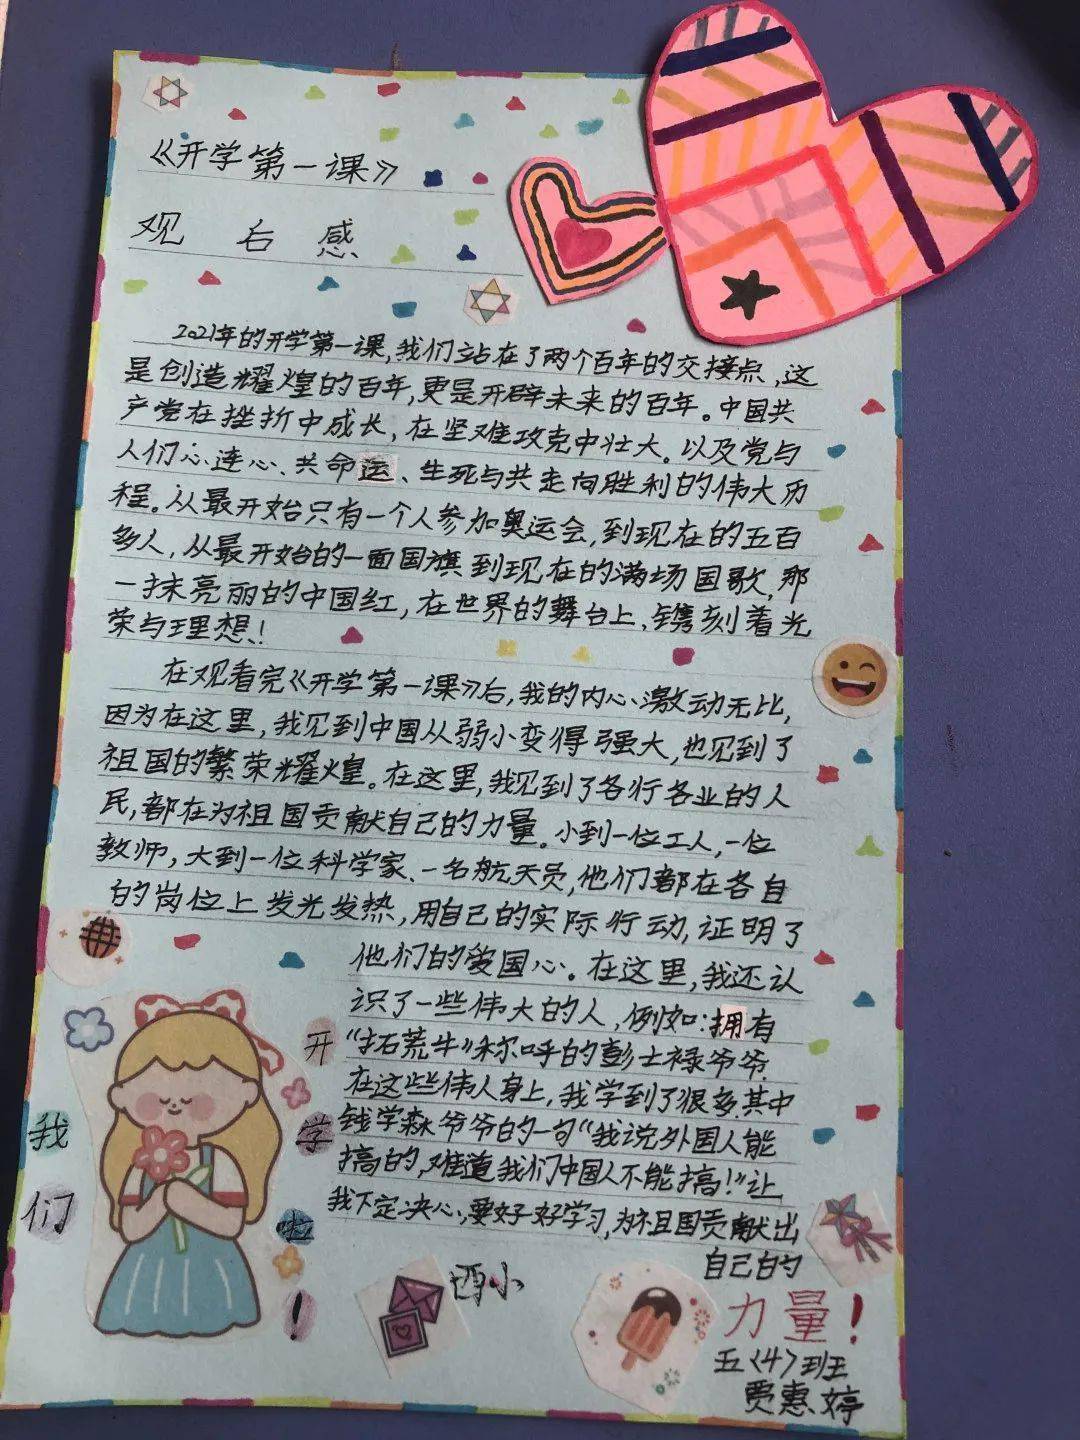 《开学第一课》
观 后 感
2021年的开学第一课,我们站在了两个百年的交接点,这
是创造耀煌的百年,更是开辟未来的百年。中国共
产党在挫折中成长,在坚难攻克中壮大。以及党与
人们心连心、共命运、生死与共走向胜利的伟大历
程。从最开始只有一个人参加奥运会,到现在的五百
多人,从最开始的一面国旗到现在的满场国歌,那
一抹亮丽的中国红,在世界的舞台上、镌刻着光
荣与理想!
在观看完《开学第一课》后,我的内心激动无比,
因为在这里,我见到中国从弱小变得强大,也见到了
祖国的繁荣耀煌。在这里,我见到了各行各业的人
民,都在为祖国贡献自己的力量。小到一位工人,一位
教师,大到一位科学家、一名航天员,他们都在各自
的岗位上发光发热,用自己的实际行动,证明了
他们的爱国心。在这里,我还认
识了一些伟大的人,例如:拥有
“拓荒牛”称呼的彭士禄爷爷
在这些伟人身上,我学到了很多.其中
钱学森爷爷的一句“我说外国人能
搞的,难道我们中国人不能搞!”让
我下定决心,要好好学习,为祖国贡献出
自己的
力量!
我们
开学啦!
西小
五〈4〉班
贾惠婷